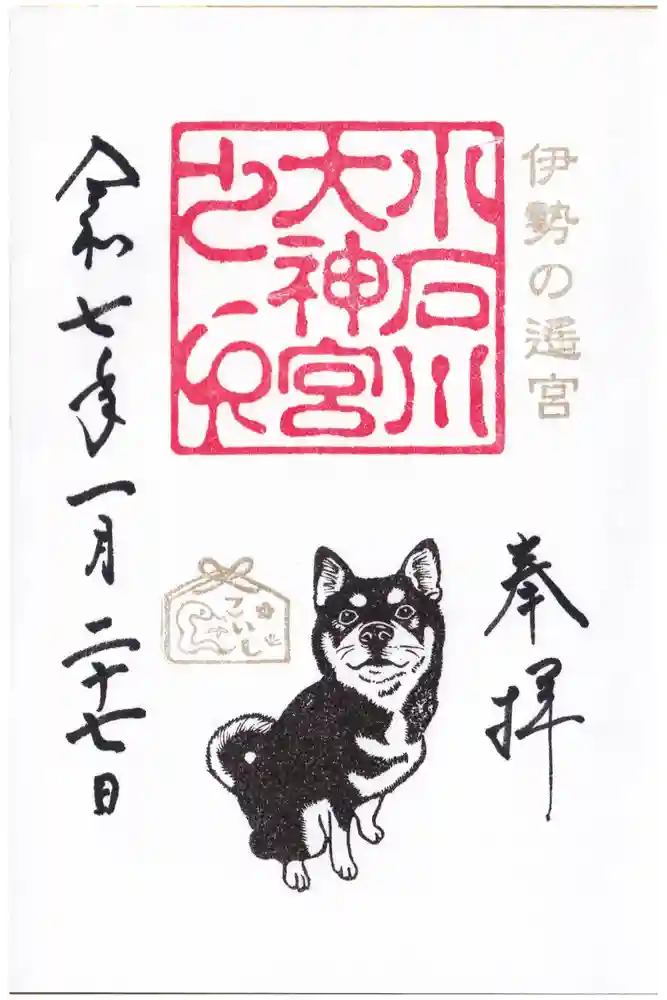 伊勢の遥宮
奉拝
小石川
大神宮
之印
令和七年一月二十七日